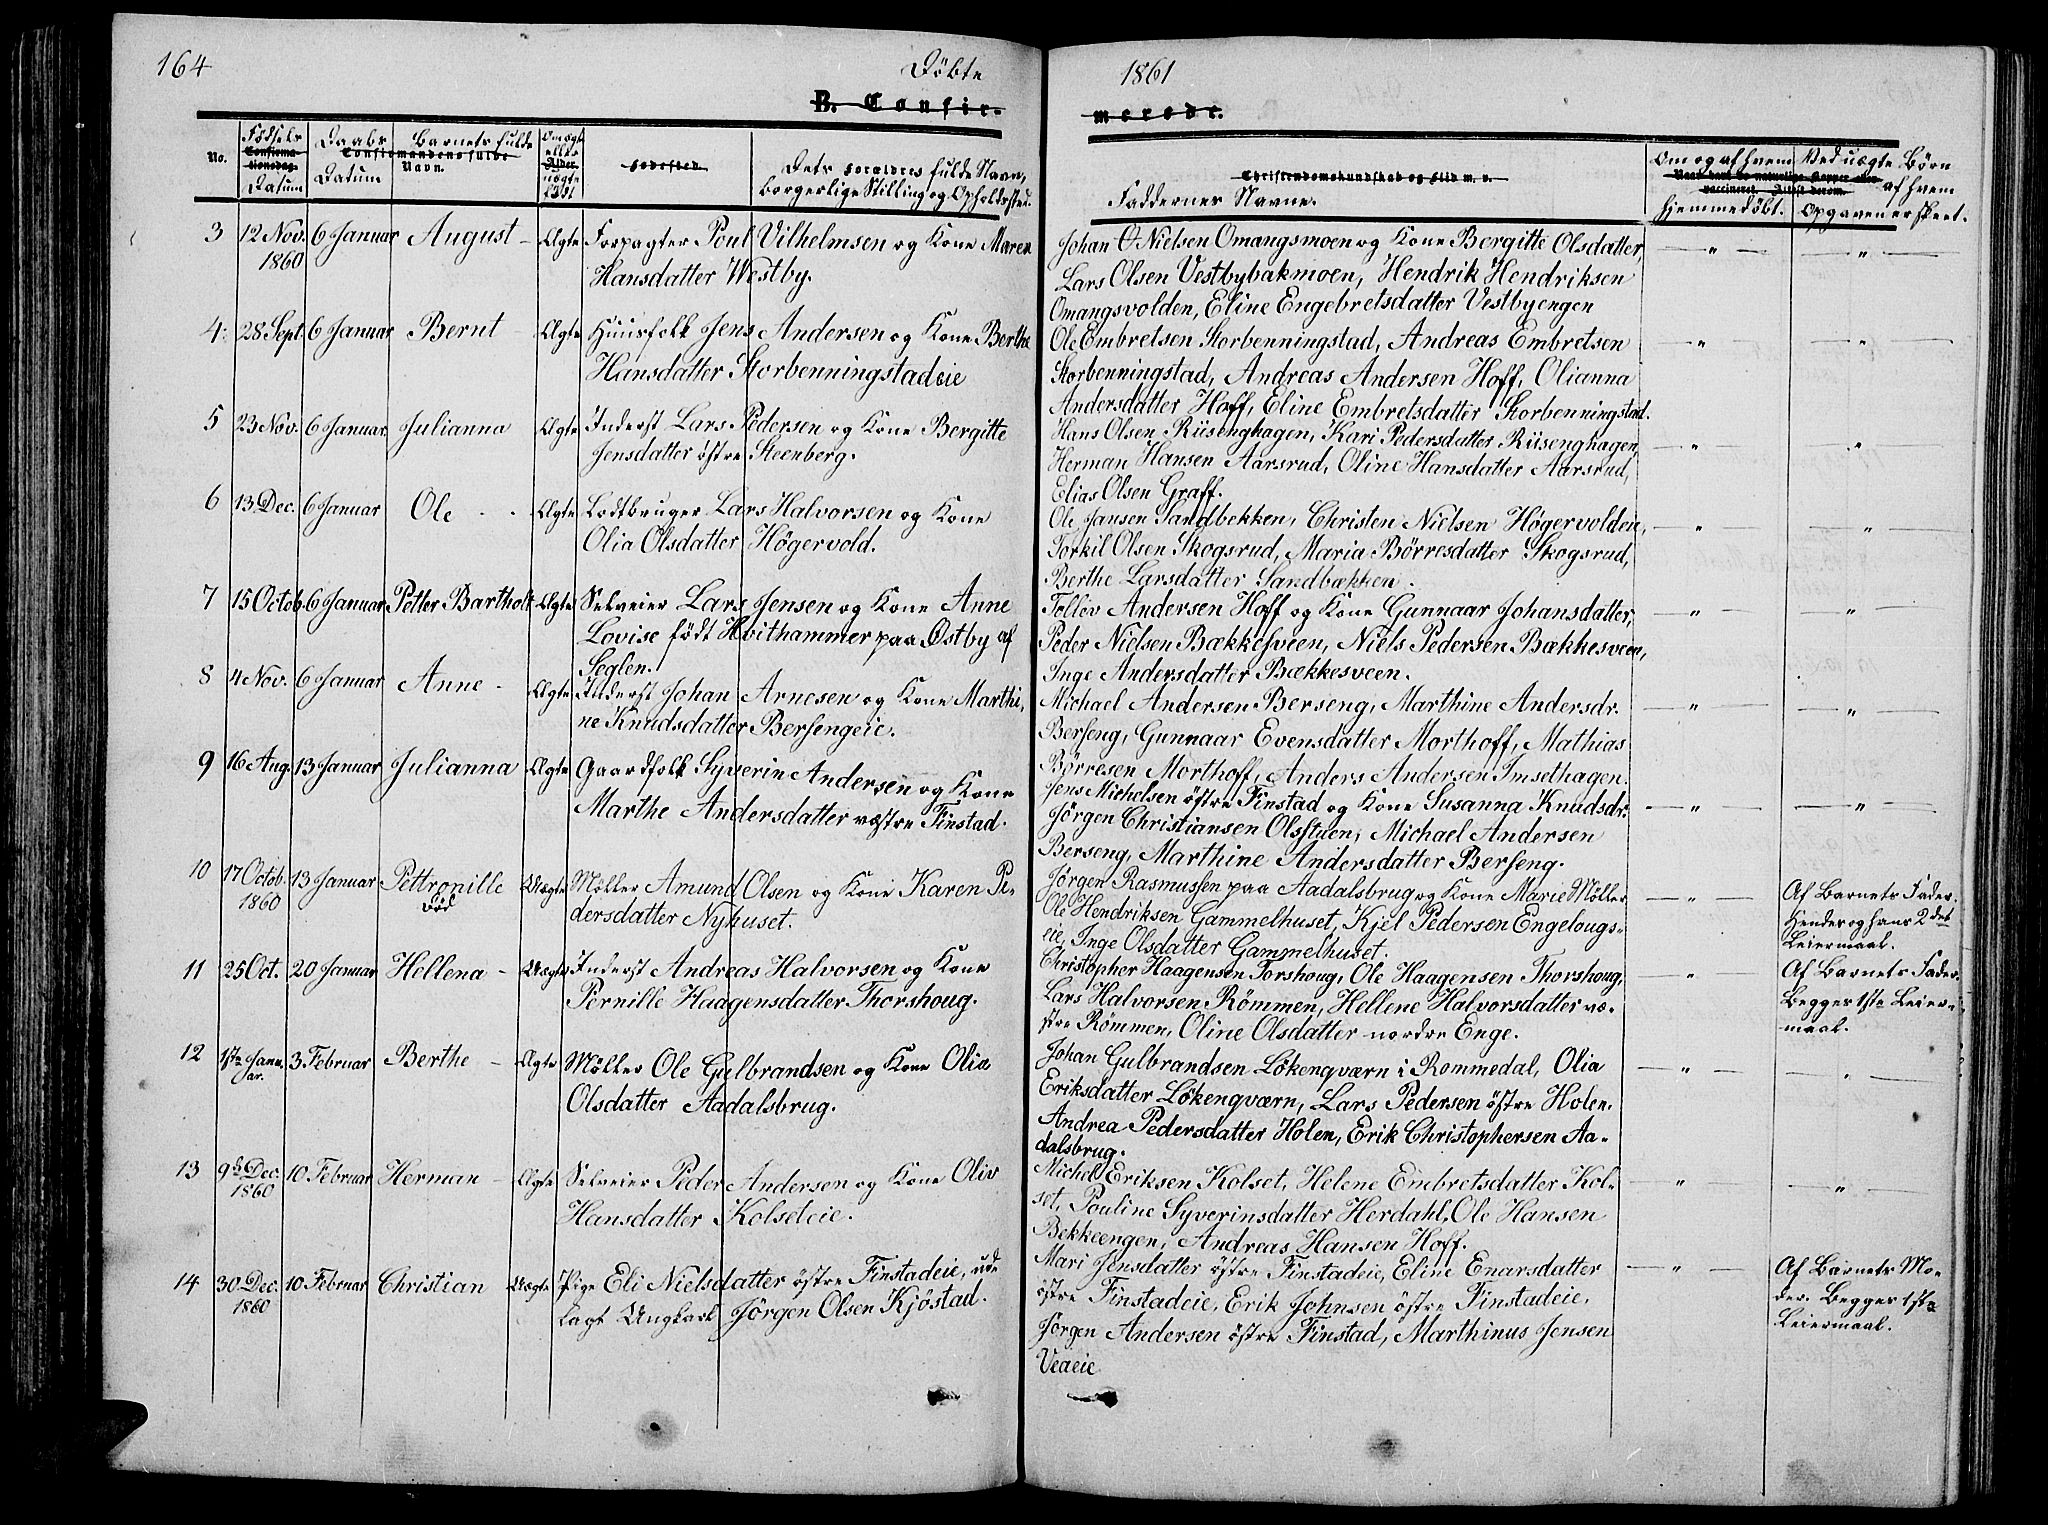 164
Döbte
1861
B. Confir-
merede.
No.
Födsels
Confirma-
tionsdag
Datum
Daabs
Datum
Barnets fulde
Confirmandens fulde
Navn.
Om ægte
eller
Alder
uægte
födt
Födested
Dets Forældres fulde Navn,
borgerlige Stilling og Opholdssted.
Christendomskundskab og Flid m. v.
Faddernes Navne.
Om og af hvem
hjemmedöbt.
Ved uægte Börn
af hvem
Opgaven er skeet.
3 12 Nov. 1860 6 Januar August - Ægte Forpagter Poul Vilhelmsen og Kone Maren
Hansdatter Westby.
Johan O Nielsen Omangsmoen og Kone Bergitte Olsdatter,
Lars Olsen Vestbybakmoen, Hendrik Hendriksen
Omangsvolden, Eline Engebretsdatter Vestbyengen
4. 28 Sept. 6 Januar Bernt - Ægte Huusfolk Jens Andersen og Kone Berthe
Hansdatter Storbenningstadeie
Ole Embretsen Storbenningstad, Andreas Embretsen
Storbenningstad, Andreas Andersen Hoff, Olianna
Andersdatter Hoff, Eline Embretsdatter Storbenningstad.
5 23 Nov. 6 Januar Julianna Ægte Inderst Lars Pedersen og Kone Bergitte
Jensdatter östre Steenberg.
Hans Olsen Riisenghagen, Kari Pedersdatter Riisenghagen,
Herman Hansen Aarsrud, Oline Hansdatter Aarsrud,
Elias Olsen Graff.
6 13 Dec. 6 Januar Ole - - Ægte Lodtbruger Lars Halvorsen og Kone
Olia Olsdatter Högervold.
Ole Jansen Sandbekken, Christen Nielsen Högervoldeie,
Torkil Olsen Skogsrud, Maria Börresdatter Skogsrud,
Berthe Larsdatter Sandbækken.
7 15 Octob. 6 Januar Petter Bartholt Ægte Selveier Lars Jensen og Kone Anne
Lovise födt Hvithammer paa Östby af
Seglen.
Tollöv Andersen Hoff og Kone Gunnaar Johansdatter,
Peder Nielsen Bækkesveen, Niels Pedersen Bækkesveen,
Inge Andersdatter Bækkesveen.
8 4 Nov. 6 Januar Anne - Ægte Inderst Johan Arnesen og Kone Marthi-
ne Knudsdatter Bersengeie.
Michael Andersen Berseng, Marthine Andersdr.
Berseng, Gunnaar Evensdatter Morthoff, Mathias
Börresen Morthoff, Anders Andersen Imsethagen.
9 16 Aug. 13 Januar Julianna Ægte Gaardfolk Syverin Andersen og Kone
Marthe Andersdatter vestre Finstad.
Jens Michelsen östre Finstad og Kone Susanna Knudsdr.
Jörgen Christiansen Olsstuen, Michael Andersen
Berseng, Marthine Andersdatter Berseng.
10 17 Octob. 1860 13 Januar Pettronille död Uægte Möller Amund Olsen og Kone Karen Pe-
dersdatter Nyhuset.
Jörgen Rasmussen paa Aadalsbrug og Kone Marie Möller,
Ole Hendriksen Gammelhuset, Kjel Pedersen Engelougs-
eie, Inge Olsdatter Gammelhuset.
Af Barnets Fader.
Hendes og hans 2det
Leiermaal.
11 25 Oct. 20 Januar Hellena - Uægte Inderst Andreas Halvorsen og Kone
Pernille Haagensdatter Thorshoug.
Christopher Haagensen Torshoug, Ole Haagensen Thorshoug,
Lars Halvorsen Römmen, Hellene Halvorsdatter ve-
stre Römmen, Oline Olsdatter nordre Enge.
Af Barnets Fader.
Begges 1ste Leier-
maal.
12 1ste Janu-
ar. 3 Februar Berthe - Ægte Möller Ole Gulbrandsen og Kone Olia
Olsdatter Aadalsbrug.
Johan Gulbrandsen Lökenqværn i Rommedal, Olia
Eriksdatter Lökenqværn, Lars Pedersen östre Holen.
Andrea Pedersdatter Holen, Erik Christophersen Aa-
dalsbrug.
13 9de Dec. 1860 10 Februar Herman - Ægte Selveier Peder Andersen og Kone Oliv
Hansdatter Kolseteie.
Michel Eriksen Kolset, Helene Embretsdatter Kol-
set, Pouline Syverinsdatter Herdahl, Ole Hansen
Bekkeengen, Andreas Hansen Hoff.
14 30 Dec. 1860 10 Februar Christian Uægte Pige Eli Nielsdatter östre Finstadeie, ud-
lagt Ungkarl Jörgen Olsen Kjöstad.
Mari Jensdatter östre Finstadeie, Eline Enarsdatter
östre Finstadeie, Erik Johnsen östre Finstadeie,
Jörgen Andersen östre Finstad, Marthinus Jensen
Veaeie
Af Barnets Mo-
der. Begges 1ste
Leiermaal.